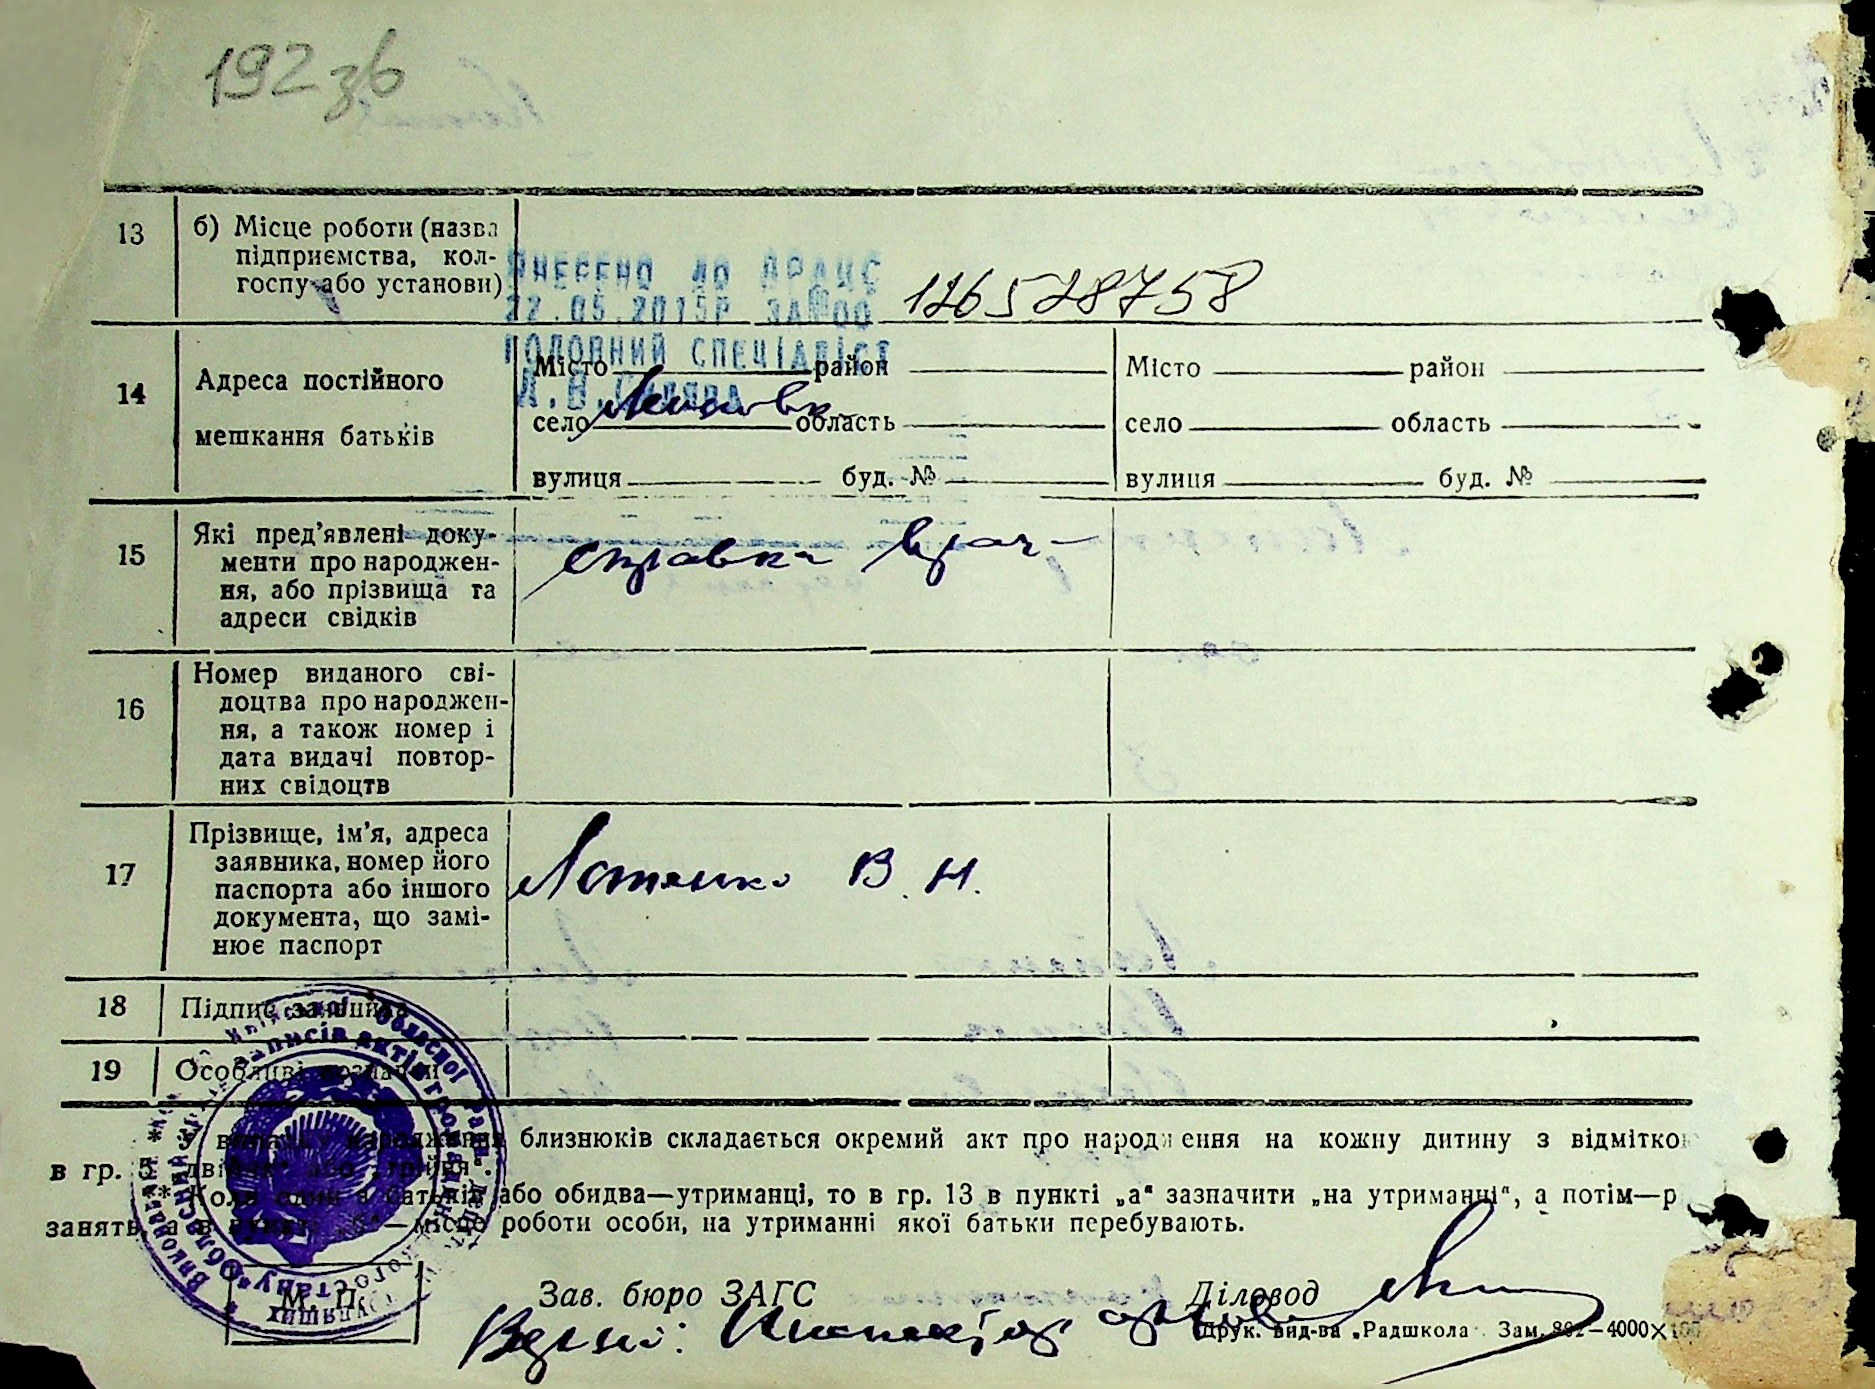 192 зв
13 б) Місце роботи (назва
підприємства, кол-
госпу або установи)
ВНЕСЕНО ДО ДРАЦС
22.05.2015Р ЗА №00 126528758
ГОЛОВНИЙ СПЕЦІАЛІСТ
14 Адреса постійного
мешкання батьків
Місто район
село область
вулиця буд. №
Місто район
село область
вулиця буд. №
15 Які пред'явлені доку-
менти про народжен-
ня, або прізвища та
адреси свідків
справка врач
16 Номер виданого сві-
доцтва про народжен-
ня, а також номер і
дата видачі повтор-
них свідоцтв
17 Прізвище, ім'я, адреса
заявника, номер його
паспорта або іншого
документа, що замі-
нює паспорт
В. Н.
18 Підпис заявника
19 Особливі позначки
народження близнюків складається окремий акт про народження на кожну дитину з відміткою
в гр. 5 „двійня" або „трійня".
* Коли один з батьків або обидва—утриманці, то в гр. 13 в пункті „а" зазначити „на утриманні", а потім—р
занять, а в пункті „б"—місце роботи особи, на утриманні якої батьки перебувають.
М. П.
Зав. бюро ЗАГС Діловод
Верно: Инспектор
Друк. вид-ва „Радшкола". Зам. 802—4000×100